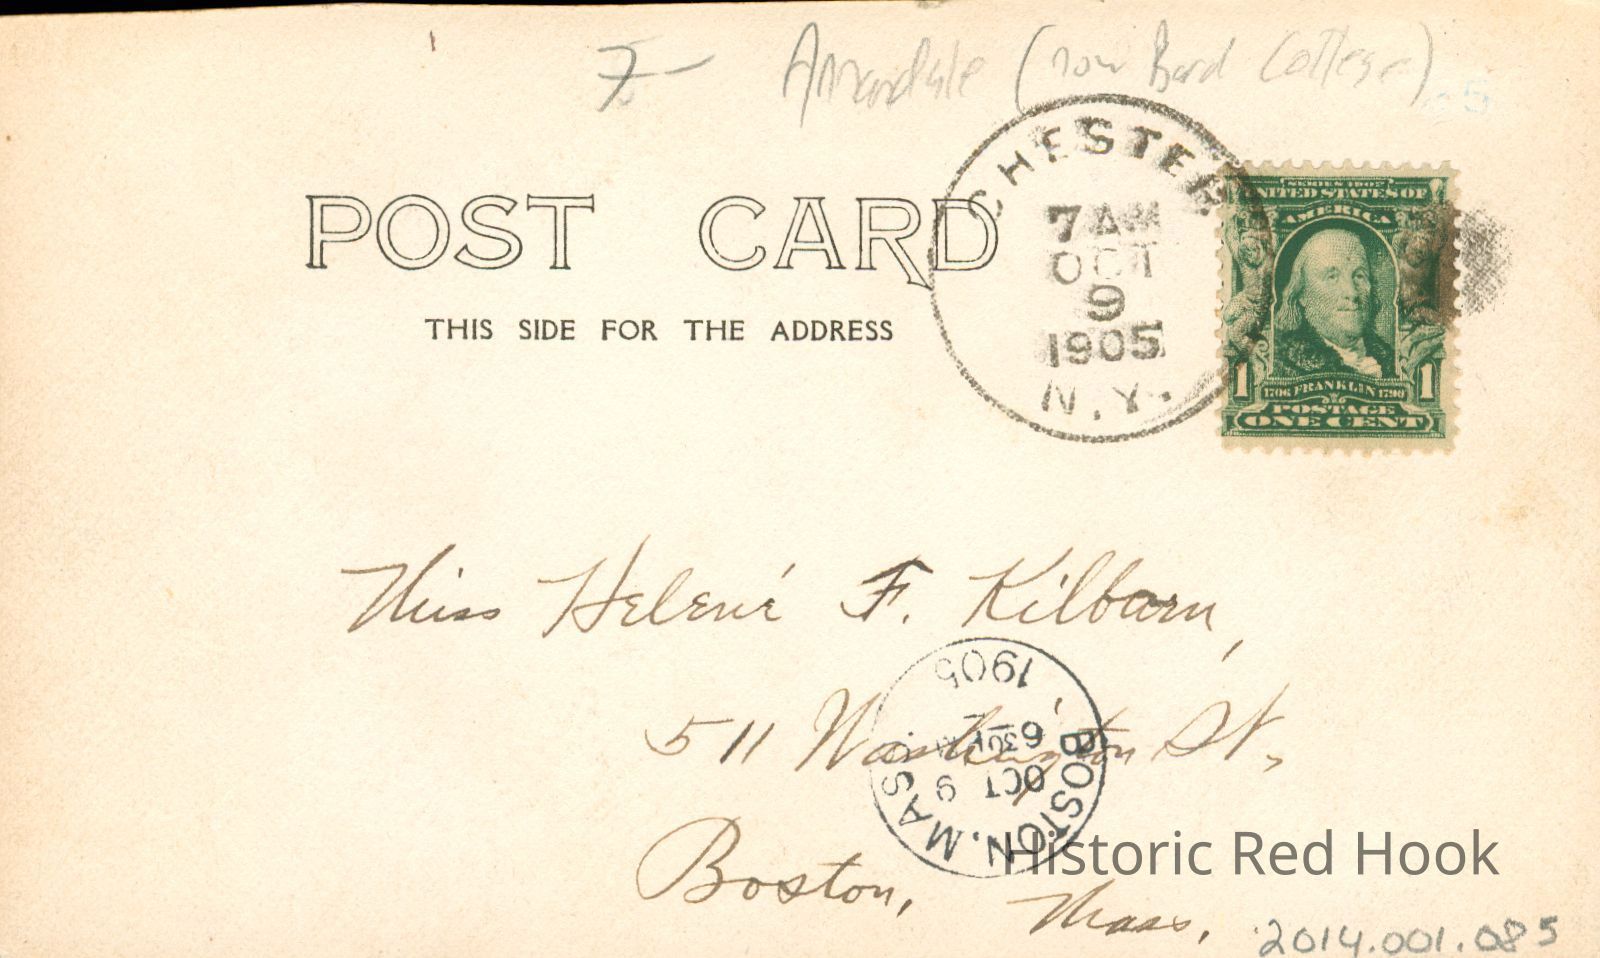 7- Annandale (now Bard College)
CHESTER
7 AM
OCT
9
1905
N.Y.
SERIES 1902
UNITED STATES OF
AMERICA
1 1706 FRANKLIN 1790 1
POSTAGE
ONE CENT
POST CARD
THIS SIDE FOR THE ADDRESS
Miss Helené F. Kilbarn,
511 Washington St,
Boston, Mass.
BOSTON, MASS.
OCT 9
6 30 PM
1905
Historic Red Hook
2014.001.085